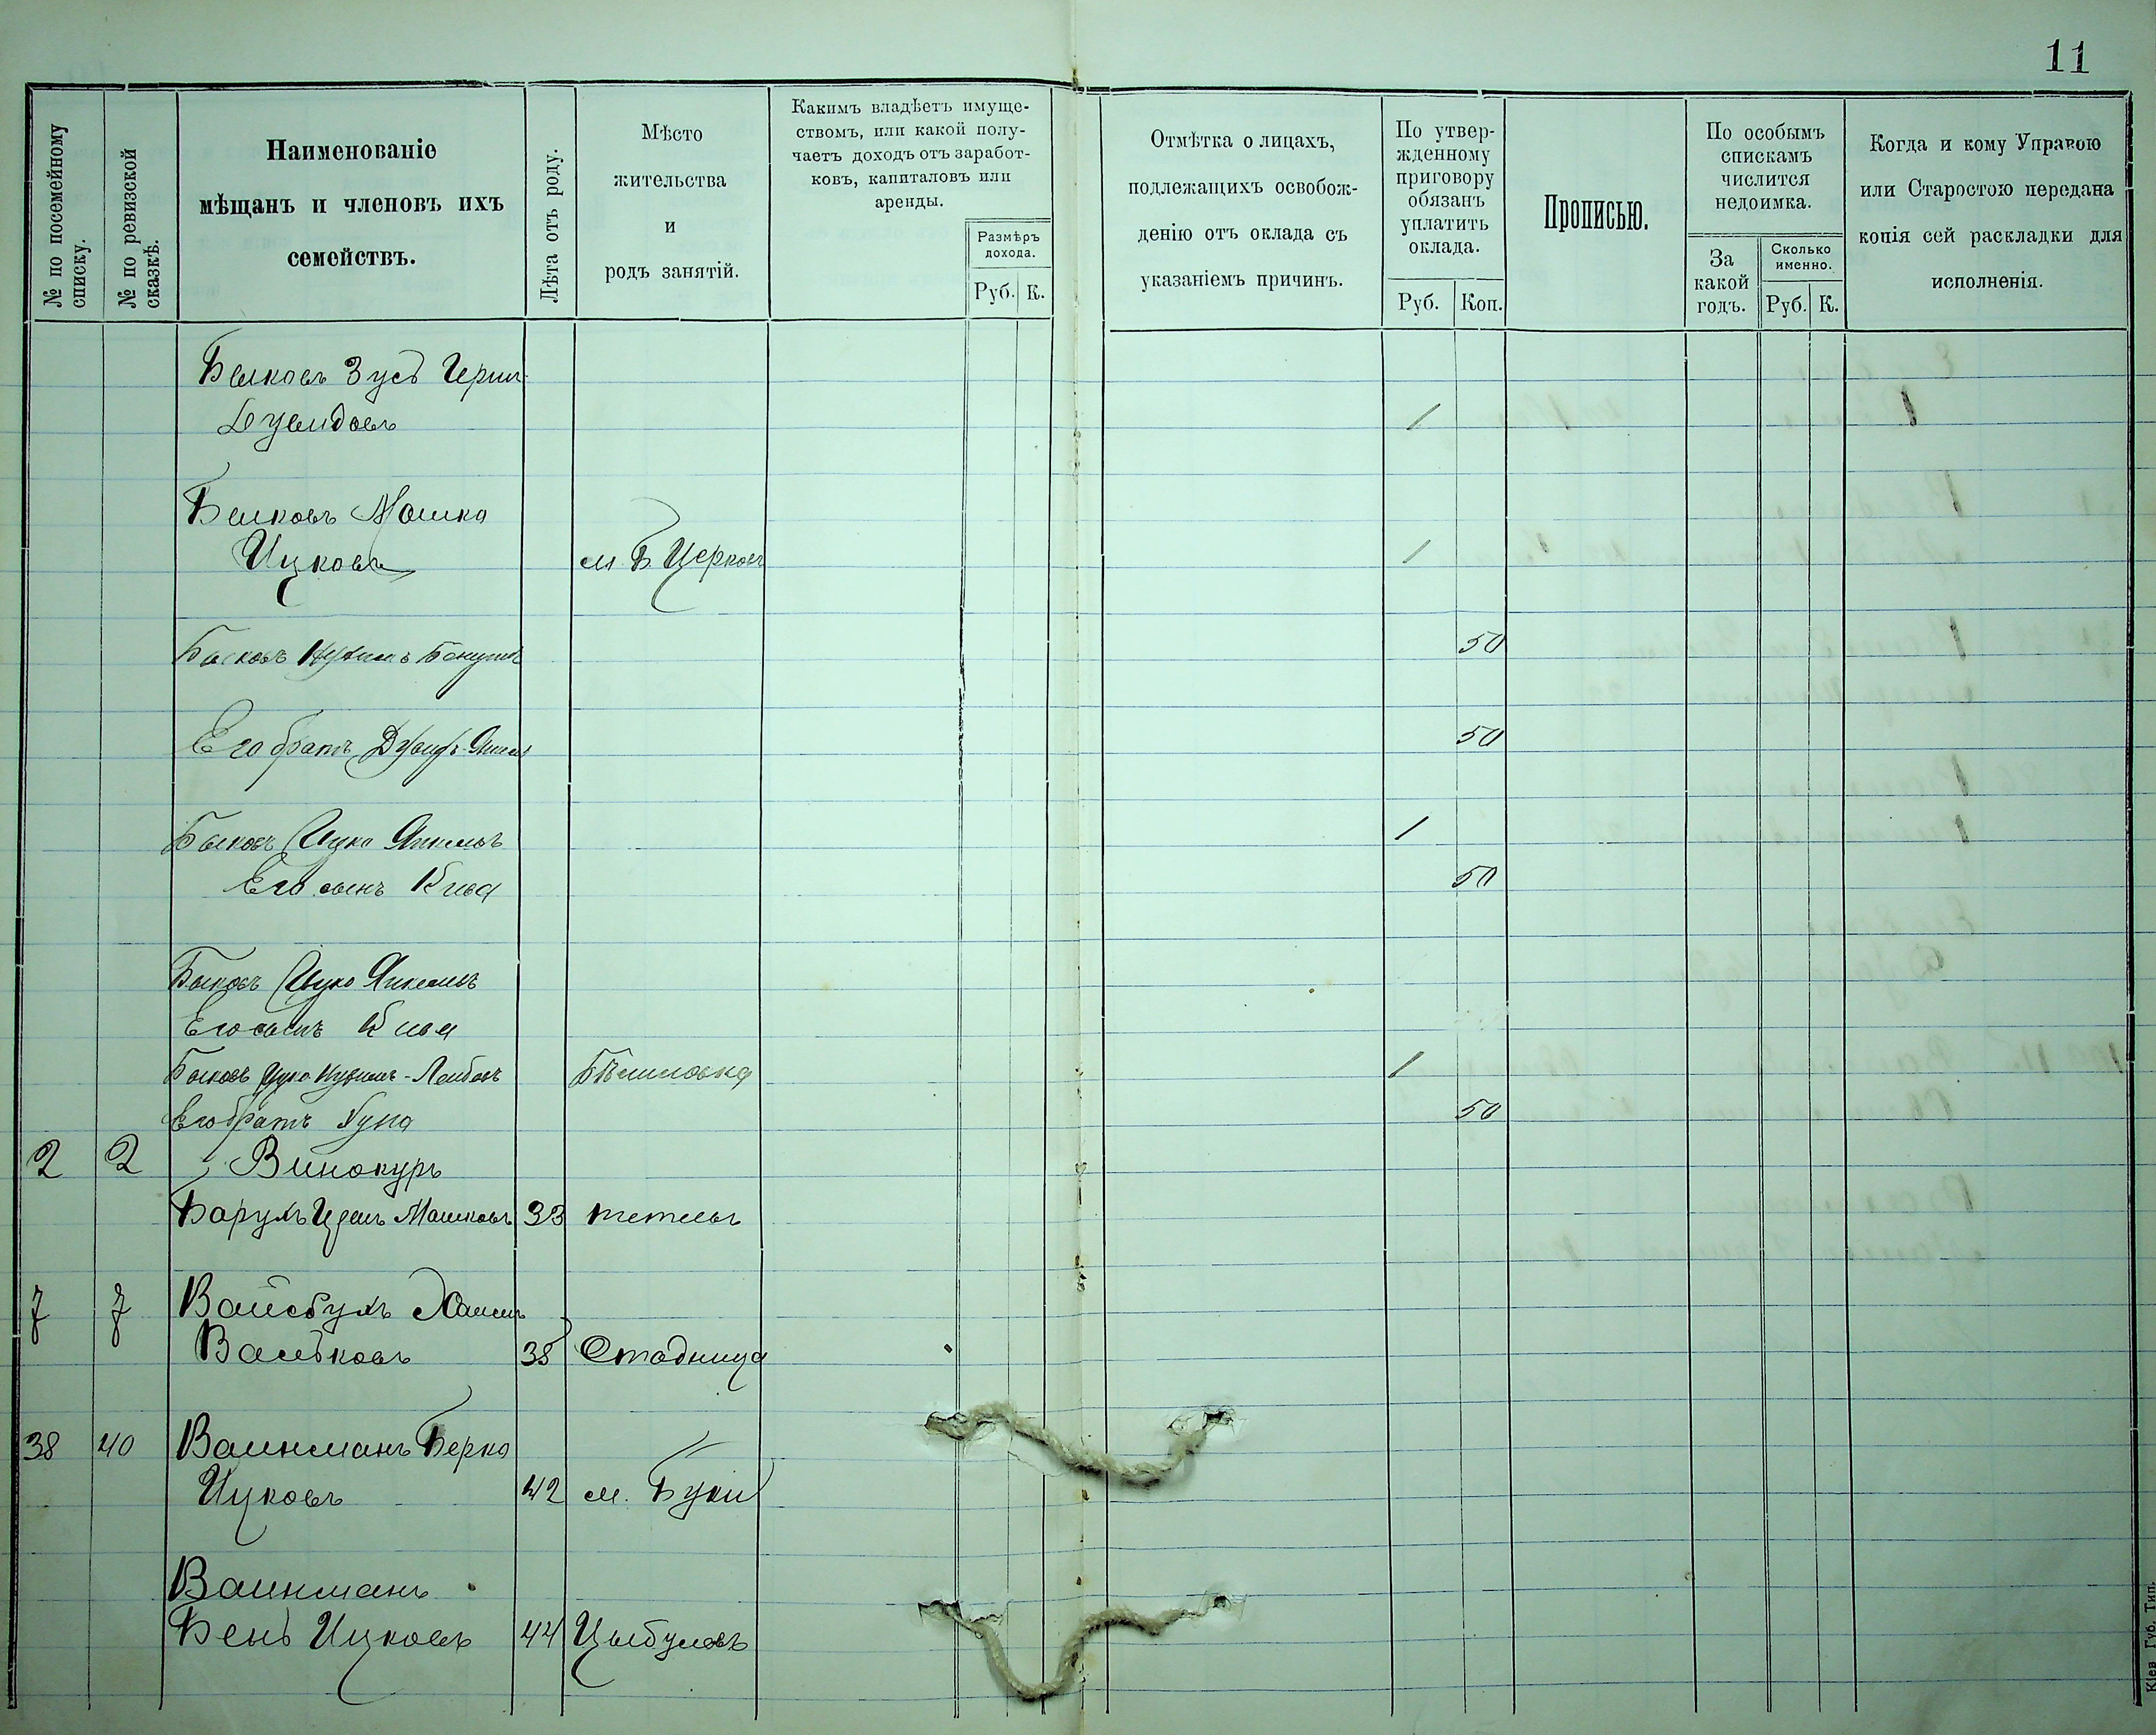 11
№ по посемейному списку.
№ по ревизской сказкѣ.
Наименованіе
мѣщанъ и членовъ ихъ
семействъ.
Лѣта отъ роду.
Мѣсто
жительства
и
родъ занятій.
Какимъ владѣетъ имуще-
ствомъ, или какой полу-
чаетъ доходъ отъ заработ-
ковъ, капиталовъ или
аренды.
Размѣръ
дохода.
Руб. К.
Отмѣтка о лицахъ,
подлежащихъ освобож-
денію отъ оклада съ
указаніемъ причинъ.
По утвер-
жденному
приговору
обязанъ
уплатить
оклада.
Руб. Коп.
Прописью.
По особымъ
спискамъ
числится
недоимка.
За
какой
годъ.
Сколько
именно.
Руб. К.
Когда и кому Управою
или Старостою передана
копія сей раскладки для
исполненія.
Быковъ Зусь Герш-
Дувидовъ 1
Быковъ Мошко
Ицковъ м. Б Церковь 1
Быковъ 50
Его братъ 50
Быковъ Ицко Янкелевъ 1
Его сынъ Кива 50
Быковъ Ицко Янкелевъ
Его сынъ Кива
Быковъ Ицко Лейбовъ 1
Его братъ 50
2 2 Винокуръ
Барухъ Мошковъ 33 тетіевъ
7 7 Вайсбухъ Хаимъ
Вольковъ 38 Стадница
38 40 Вайнманъ Берко
Ицковъ 42 м. Буки
Вайнманъ
Бень Ицковъ 44 Цыбулевъ
Кіев Губ. Тип.